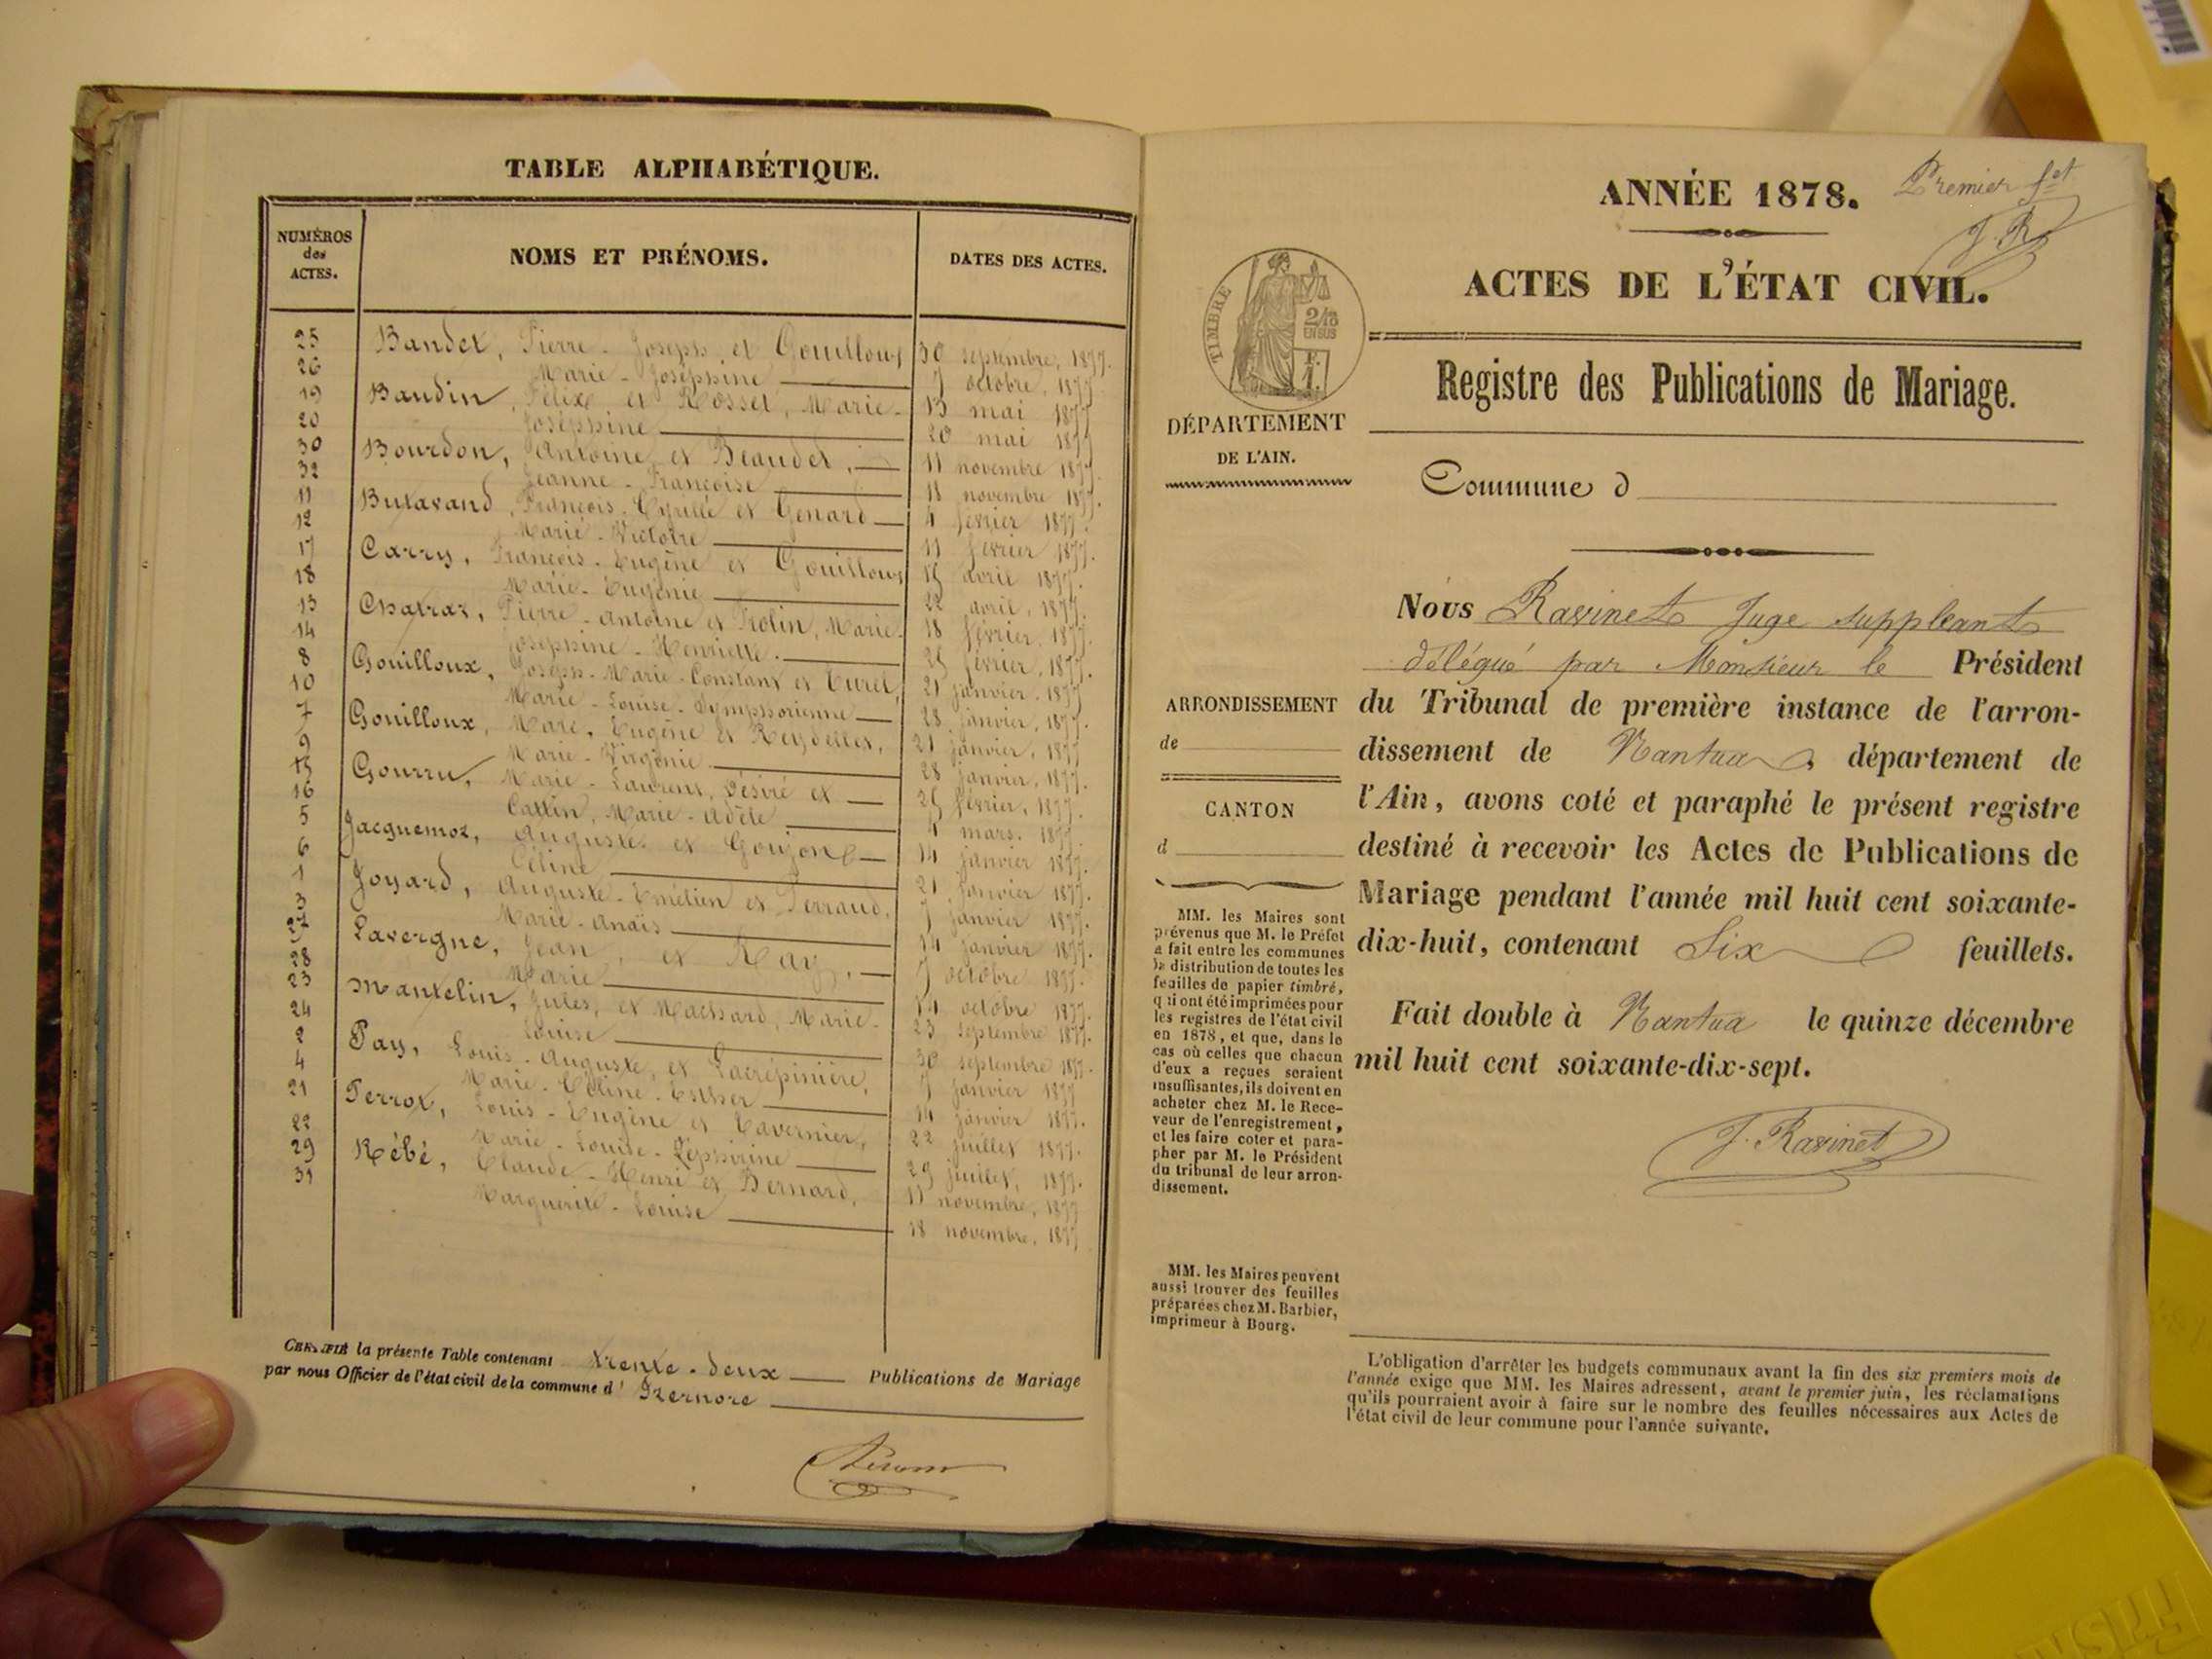 TABLE ALPHABÉTIQUE.
NUMÉROS
des
ACTES.
NOMS ET PRÉNOMS.
DATES DES ACTES.
25 Bandet, Pierre - Joseph, et Gouilloux 30 septembre, 1877.
26 Marie - Joséphine 7 octobre, 1877.
19 Baudin, Félix et Rosset, Marie - 13 mai 1877
20 Joséphine 20 mai 1877
30 Bourdon, Antoine et Beaudet, 11 novembre 1877.
32 Jeanne - Françoise 18 novembre 1877.
11 Butavand, François - Cyrille et Genard 4 février 1877.
12 Marie - Victoire 11 février 1877.
17 Carry, François - Eugène et Gouilloux 15 avril 1877.
18 Marie - Eugénie 22 avril, 1877.
13 Chatraz, Pierre - Antoine et Frolin, Marie - 18 février, 1877.
14 Joséphine - Henriette. 25 février, 1877.
8 Gouilloux, Joseph - Marie - Constant et Turel, 21 janvier, 1877
10 Marie - Louise - Symphorienne 28 janvier, 1877.
7 Gouilloux, Marc, Eugène et Reydellet, 21 janvier, 1877
9 Marie - Virginie 28 janvier, 1877.
15 Gourru, Marie - Laurent, Désiré et 25 février, 1877.
16 Cattin, Marie - Adèle 4 mars, 1877
5 Jacquemoz, Auguste et Goujon 14 janvier 1877.
6 Céline 21 janvier 1877.
1 Joyard, Auguste - Emélien et Perraud, 7 janvier 1877.
3 Marie - Anaïs 14 janvier 1877.
27 Lavergne, Jean, et Ray, 7 octobre 1877.
28 Marie 14 octobre 1877.
23 Mantelin, Jules, et Machard, Marie - 23 septembre 1877.
24 Louise 30 septembre 1877.
2 Pay, Louis - Auguste, et Lacrépinière, 7 janvier 1877
4 Marie - Céline - Esther 14 janvier 1877.
21 Perrot, Louis - Eugène et Tavernier, 22 juillet 1877.
22 Marie - Louise - Zéphirine 29 juillet, 1877.
29 Rébé, Claude - Henri et Bernard, 11 novembre, 1877
31 Marguerite - Louise 18 novembre, 1877
CERTIFIÉ la présente Table contenant trente - deux Publications de Mariage
par nous Officier de l'état civil de la commune d' Izernore
Premier fet
J. R
ANNÉE 1878.
ACTES DE L'ÉTAT CIVIL.
TIMBRE
2/10
EN SUS
Registre des Publications de Mariage.
DÉPARTEMENT
DE L'AIN.
Commune d
Nous Ravinet Juge suppléant
délégué par Monsieur le Président
du Tribunal de première instance de l'arron-
dissement de Nantua, département de
l'Ain, avons coté et paraphé le présent registre
destiné à recevoir les Actes de Publications de
Mariage pendant l'année mil huit cent soixante-
dix-huit, contenant Six feuillets.
Fait double à Nantua le quinze décembre
mil huit cent soixante-dix-sept.
J. Ravinet
ARRONDISSEMENT
de
CANTON
d
MM. les Maires sont
prévenus que M. le Préfet
a fait entre les communes
la distribution de toutes les
feuilles de papier timbré,
qui ont été imprimées pour
les registres de l'état civil
en 1878, et que, dans le
cas où celles que chacun
d'eux a reçues seraient
insuffisantes, ils doivent en
acheter chez M. le Rece-
veur de l'enregistrement,
et les faire coter et para-
pher par M. le Président
du tribunal de leur arron-
dissement.
MM. les Maires peuvent
aussi trouver des feuilles
préparées chez M. Barbier,
imprimeur à Bourg.
L'obligation d'arrêter les budgets communaux avant la fin des six premiers mois de
l'année exige que MM. les Maires adressent, avant le premier juin, les réclamations
qu'ils pourraient avoir à faire sur le nombre des feuilles nécessaires aux Actes de
l'état civil de leur commune pour l'année suivante.